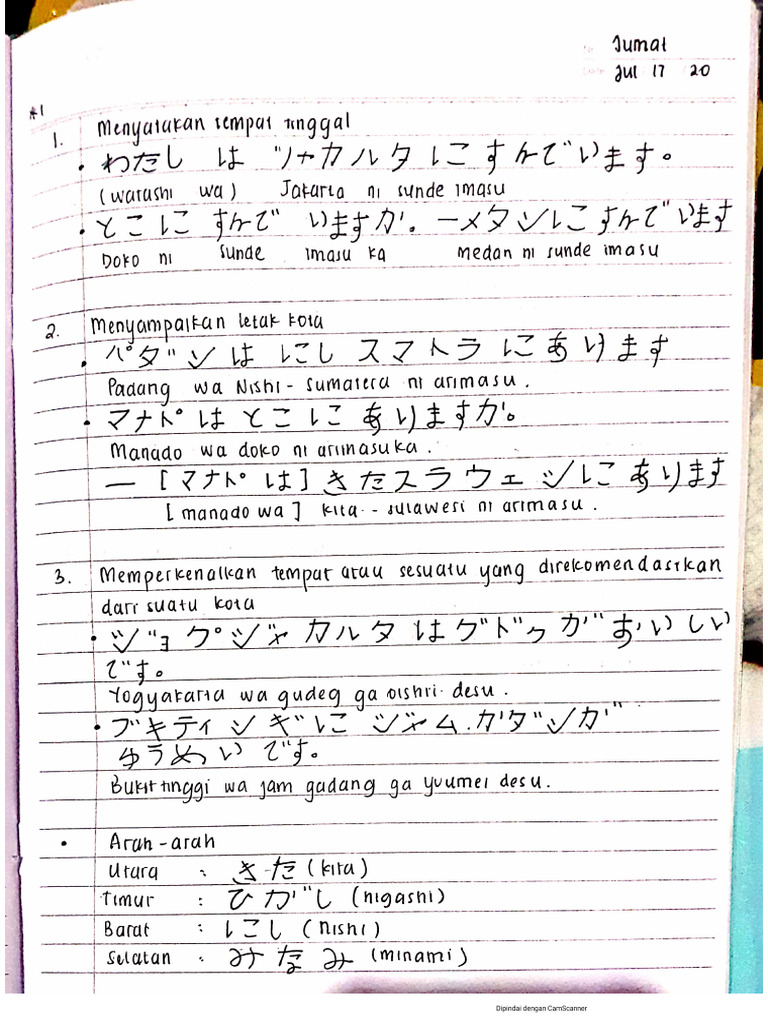 Jumat
Date Jul 17 20
#1
1. Menyatakan tempat tinggal
• わたし は ジャカルタ に すんで います。
(watashi wa) Jakarta ni sunde imasu
• とこに すんで いますか。 ーメタンにすんで います
Doko ni sunde imasu ka medan ni sunde imasu
2. Menyampaikan letak kota
• パダン は にし スマトラ に あります
Padang wa Nishi - Sumatera ni arimasu.
• マナド は とこ に ありますか。
Manado wa doko ni arimasuka.
ー [マナド は] きたスラウェシ に あります
[manado wa] kita - sulawesi ni arimasu.
3. Memperkenalkan tempat atau sesuatu yang direkomendasikan
dari suatu kota
• ジョグジャカルタ は グドゥグ が おいしい
です。
Yogyakarta wa gudeg ga oishii desu.
• ブキティンギ に ジャム.ガダンが
ゆうめい です。
Bukit tinggi wa jam gadang ga yuumei desu.
• Arah-arah
Utara : きた (kita)
Timur : ひがし (higashi)
Barat : にし (nishi)
Selatan : みなみ (minami)
Dipindai dengan CamScanner